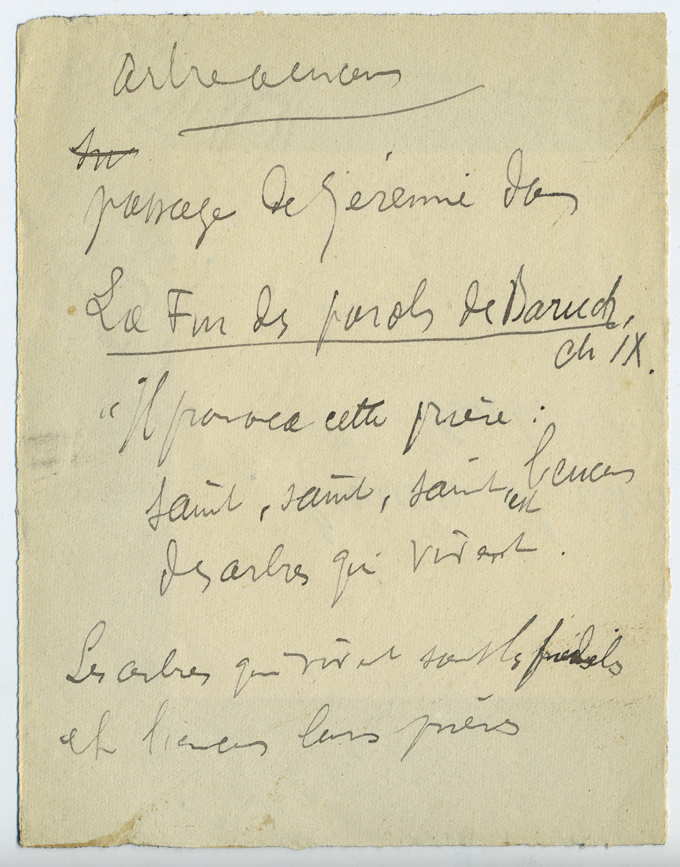 arbre a encens
passage de Jérémie dans
La Fin des paroles de Baruch,
ch IX.
"Il prononça cette prière :
saint, saint, saint, est l'encens
des arbres qui vivent.
Les arbres qui vivent sont les fidèles
et l'encens leurs prières